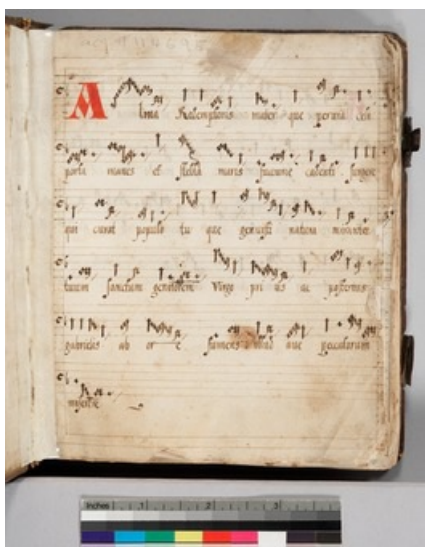 Alma Redemptoris mater que pervia celi
porta manes et stella maris succurre cadenti surgere
qui curat populo tu que genuisti natura mirante
tuum sanctum genitorem Virgo pri us ac posterius
gabrielis ab or e sumens illud ave peccatorum
miserere
Inches 1 2 3